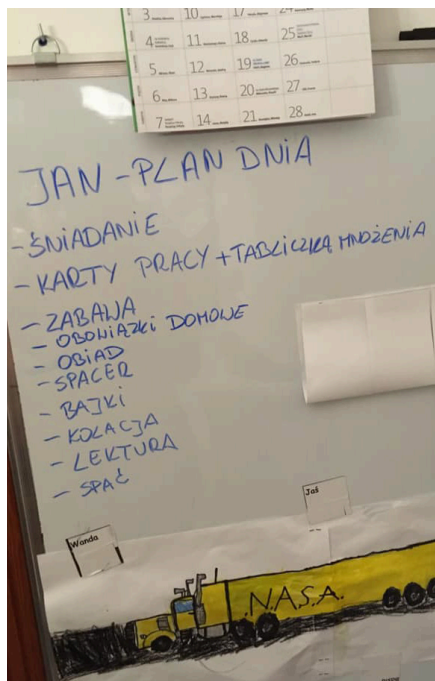 3 10 17 24
4 11 18 25
5 12 19 26
6 13 20 27
7 14 21 28
JAN - PLAN DNIA
- ŚNIADANIE
- KARTY PRACY + TABLICZKA MNOŻENIA
- ZABAWA
- OBOWIĄZKI DOMOWE
- OBIAD
- SPACER
- BAJKI
- KOLACJA
- LEKTURA
- SPAĆ
Jaś
Wanda
N.A.S.A.